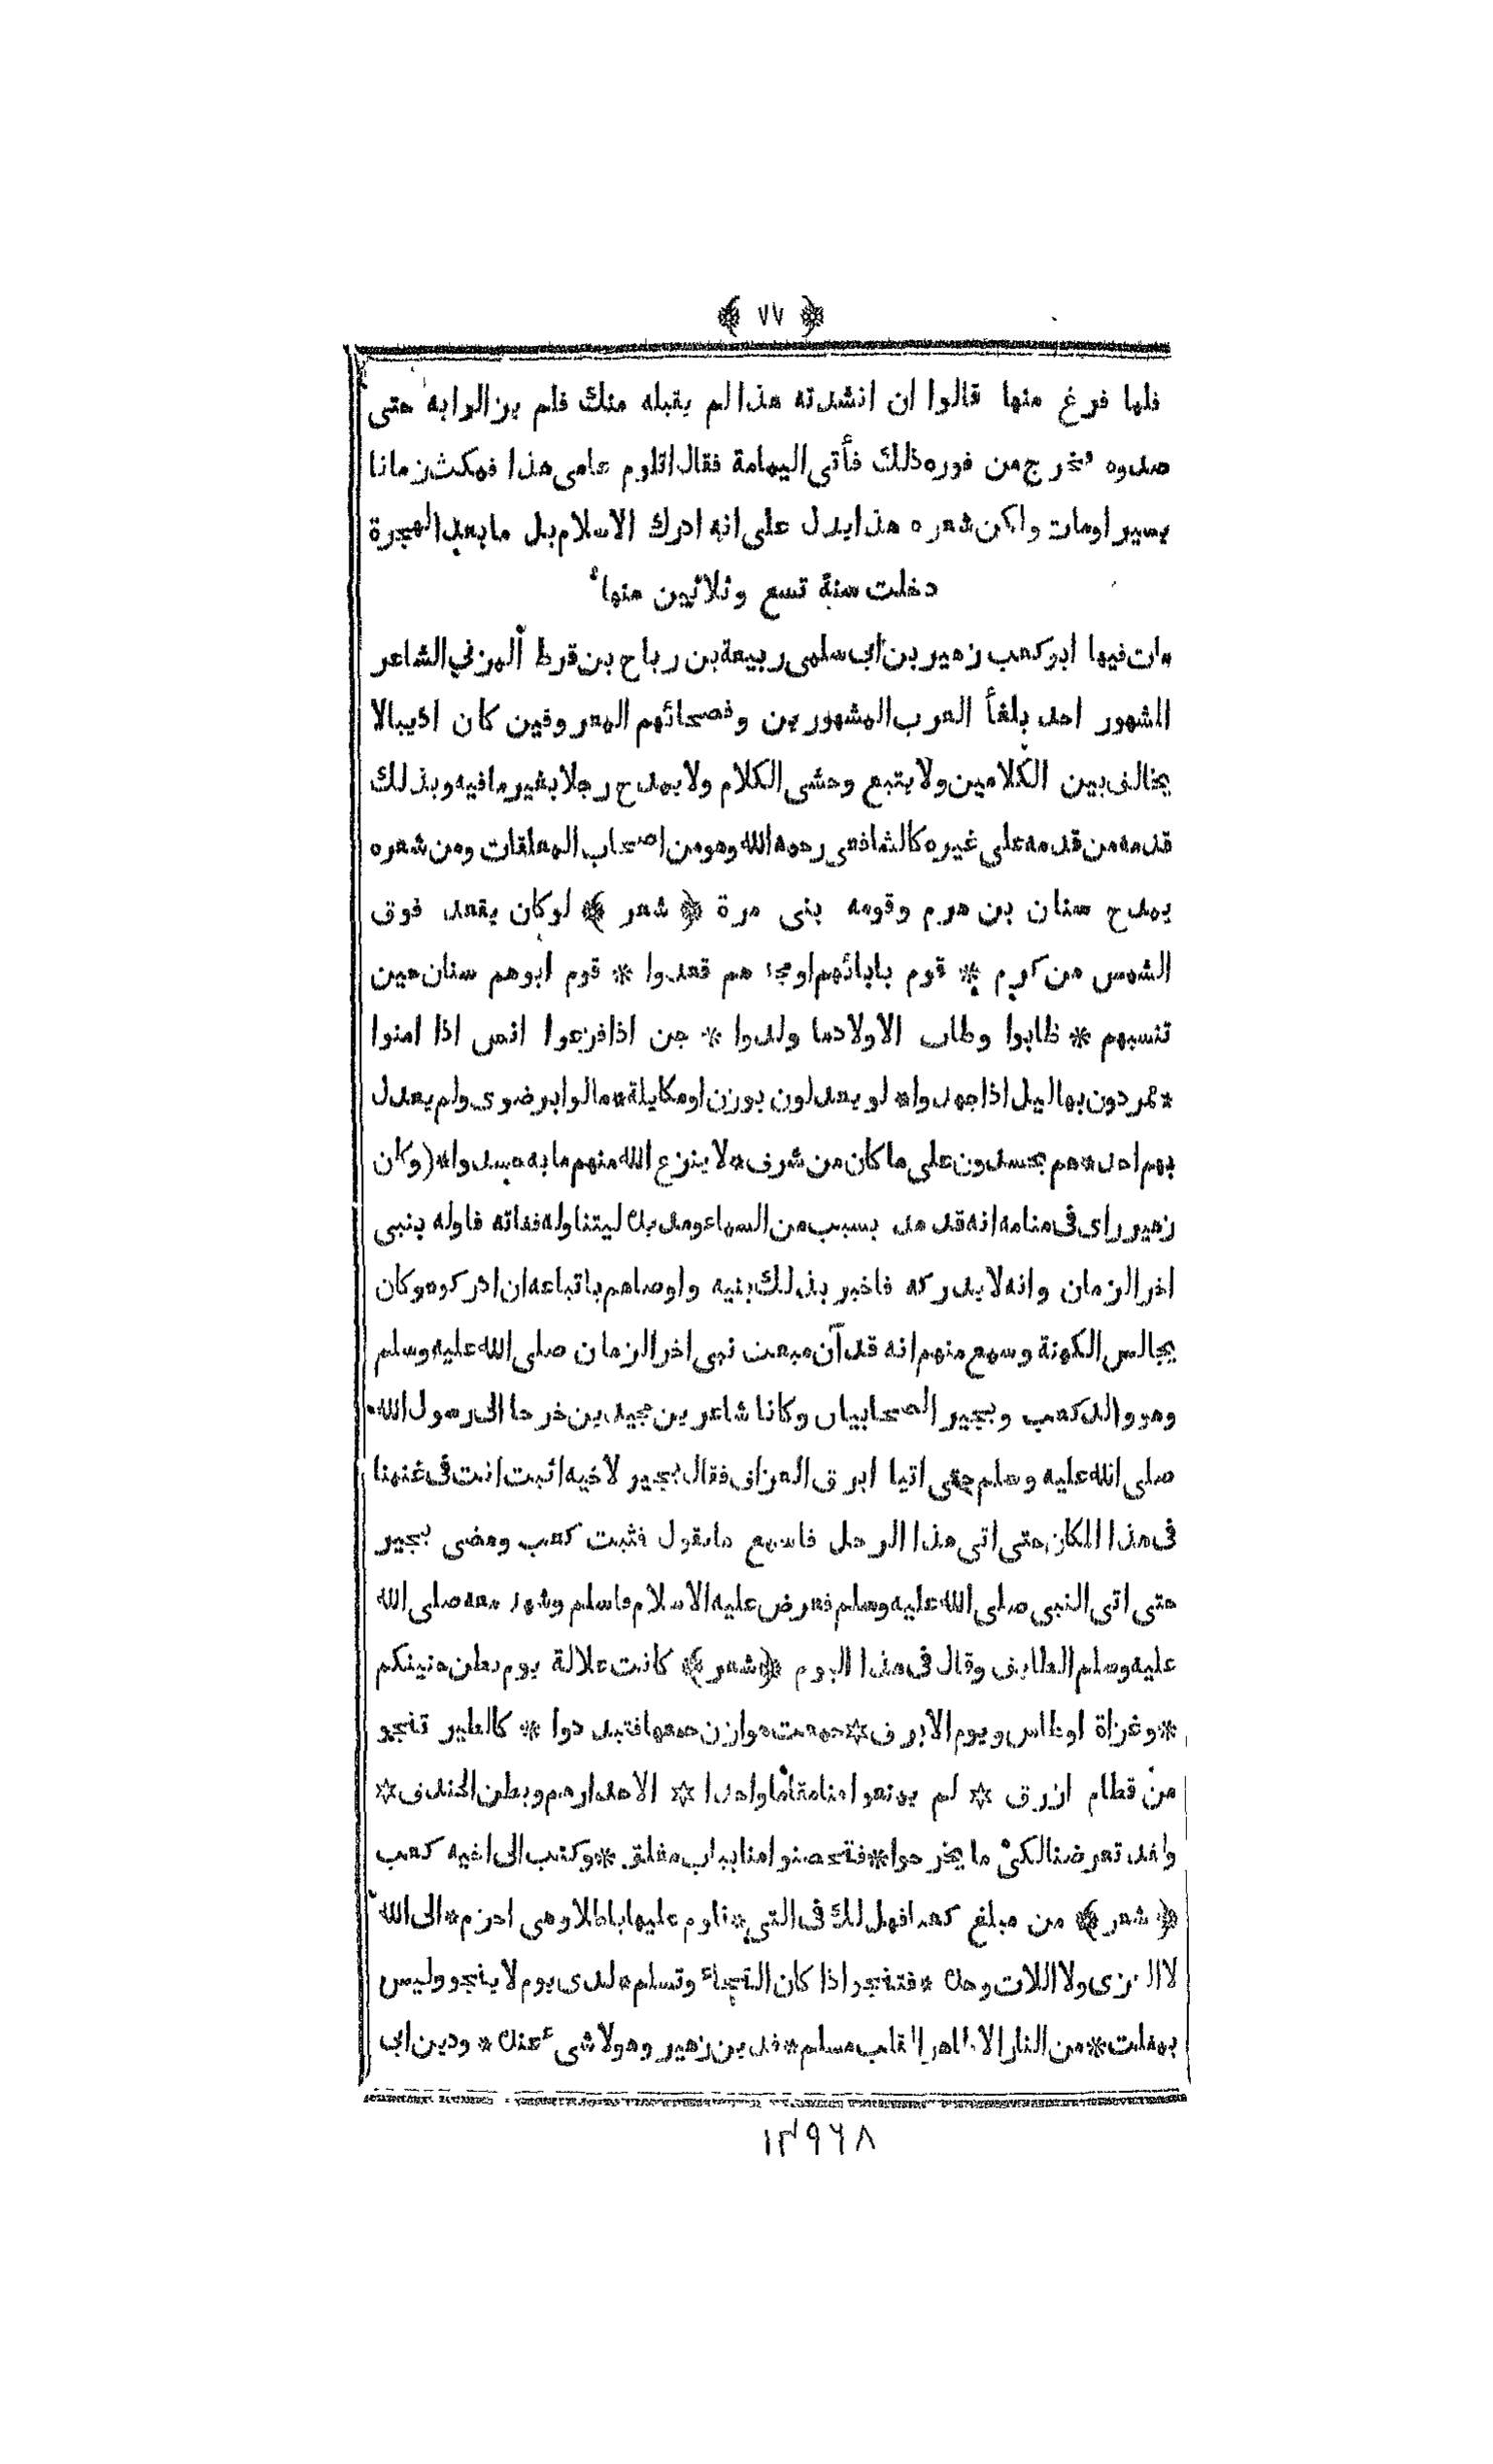 ﴿ ٧٧ ﴾
فلما فرغ منها قالوا ان انشدته هذا لم يقبله منك فلم يزالوا به حتى
صدوه فخرج من فوره ذلك فأتى اليمامة فقال اتلوم عامى هذا فمكث زمانا
يسيرا ومات ولكن شعره هذا يدل على انه ادرك الاسلام بل ما بعد الهجرة
دخلت سنة تسع وثلاثين منها
مات فيها ابو كعب زهير بن ابى سلمى ربيعة بن رباح بن قرط المزني الشاعر
المشهور احد بلغأ العرب المشهورين وفصحائهم المعروفين كان اديبا لا
يخالف بين الكلامين ولا يتبع وحشى الكلام ولا يمدح رجلا بغير ما فيه وبذلك
قدمه من قدمه على غيره كالشافعى رحمه الله وهو من اصحاب المعلقات ومن شعره
يمدح سنان بن هرم وقومه بنى مرة ﴿ شعر ﴾ لو كان يقعد فوق
الشمس من كرم * قوم بابائهم او مجدهم قعدوا * قوم ابوهم سنان حين
تنسبهم * طابوا وطاب الاولاد ما ولدوا * جن اذا فزعوا انس اذا امنوا
* مردون بهاليل اذا جهدوا * لو يعدلون بوزن او مكايلة * مالوا برضوى ولم يعدل
بهم احد * هم يحسدون على ما كان من شرف * لا ينزع الله منهم ما به حسدوا * (وكان
زهير راى فى منامه انه قد مد بسبب من السماء ومد يده ليتناوله ففاته فاوله بنبى
اخر الزمان وانه لا يدركه فاخبر بذلك بنيه واوصاهم باتباعه ان ادركوه وكان
يجالس الكهنة وسمع منهم انه قد آن مبعث نبى اخر الزمان صلى الله عليه وسلم
وهو والد كعب وبجير الصحابيان وكانا شاعرين مجيدين خرجا الى رسول الله
صلى الله عليه وسلم حتى اتيا ابرق العزاف فقال بجير لاخيه اثبت انت فى غنمنا
فى هذا المكان حتى اتى هذا الرجل فاسمع ما يقول فثبت كعب ومضى بجير
حتى اتى النبى صلى الله عليه وسلم فعرض عليه الاسلام فاسلم وشهد معه صلى الله
عليه وسلم الطايف وقال فى هذا اليوم ﴿شعر﴾ كانت علالة يوم بطن حنينكم
* وغزاة اوطاس ويوم الابرق ☆ جمعت هوازن جمعها فتبددوا * كالطير تنجو
من قطام ازرق ☆ لم يمنعوا منا مقاما واحدا ☆ الا جدارهم وبطن الخندق ☆
ولقد تعرضنا لكى ما يخرجوا * فتحصنوا منا بباب مغلق * وكتب الى اخيه كعب
﴿ شعر ﴾ من مبلغ كعبا فهل لك فى التى * تلوم عليها باطلا وهى احزم * الى الله
لا العزى ولا اللات وحده * فتنجو اذا كان النجاء وتسلم * لدى يوم لا ينجو وليس
بمفلت * من النار الا طاهر القلب مسلم * فدين زهير وهو لا شىء عنده * ودين ابى
١٣٩٦٨